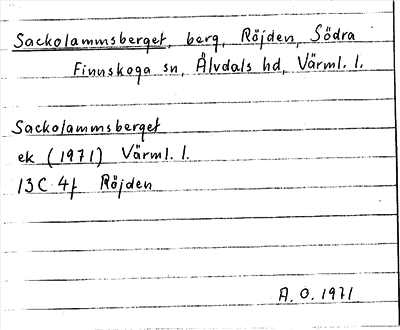 Sackolammsberget, berg, Röjden, Södra
Finnskoga sn, Älvdals hd, Värml. l.
Sackolammsberget
ek (1971) Värml. l.
13C 4f Röjden
A. O. 1971